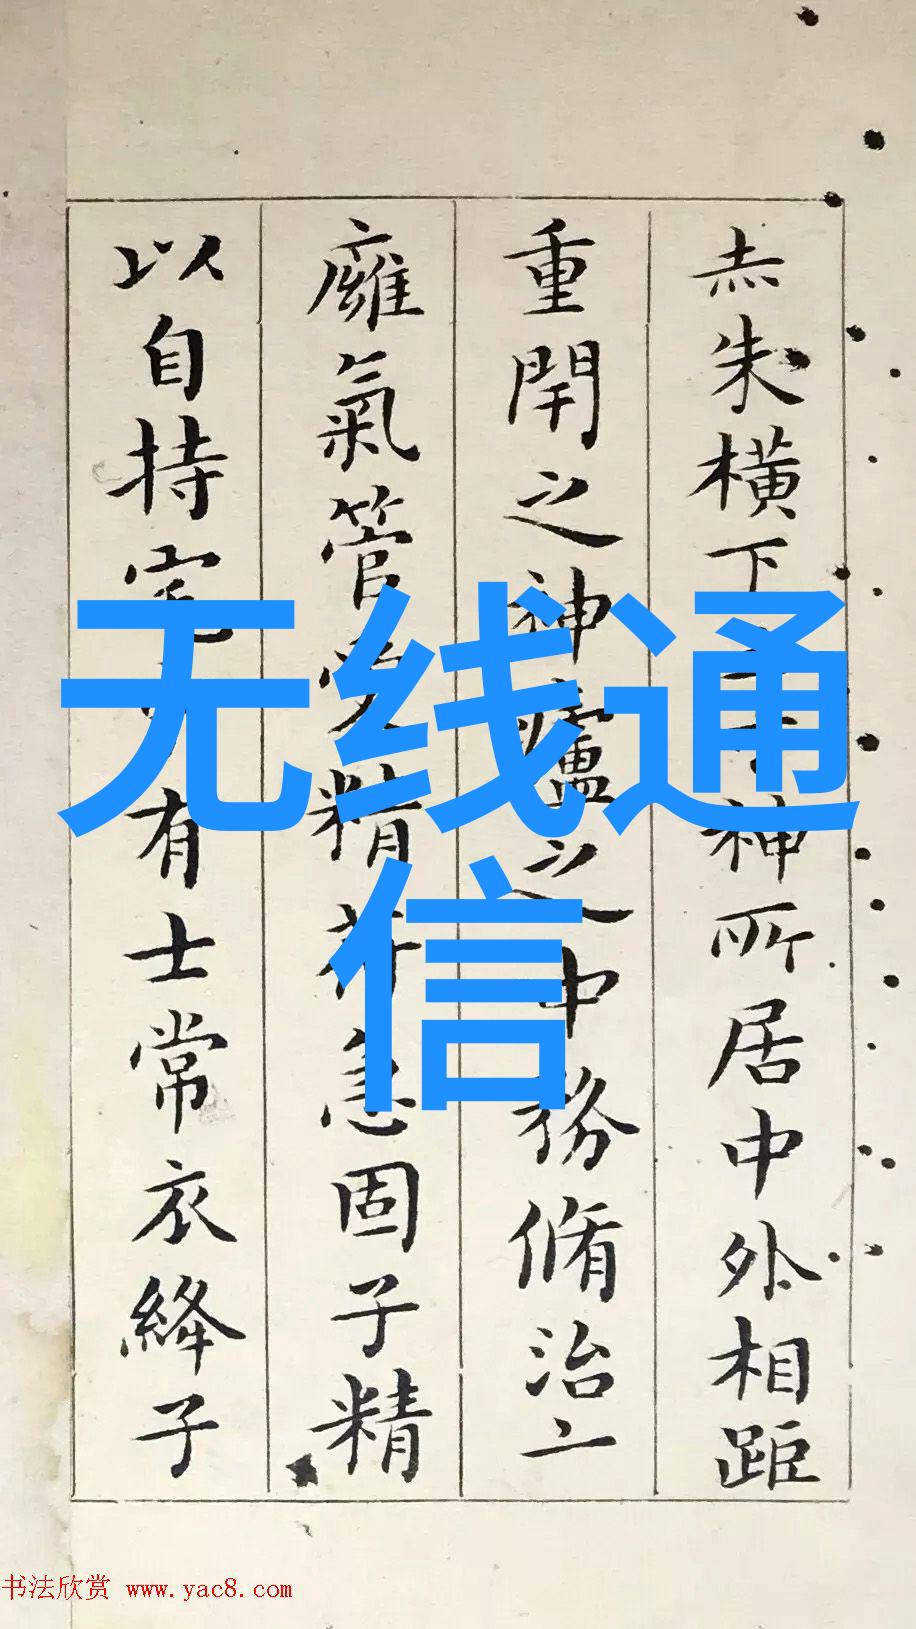 赤朱橫下三寸神所居中外相距
重閇之神廬之中務脩治
廱氣管受精符急固子精
以自持宅中有士常衣絳子
无线通
信
书法欣赏 www.yac8.com